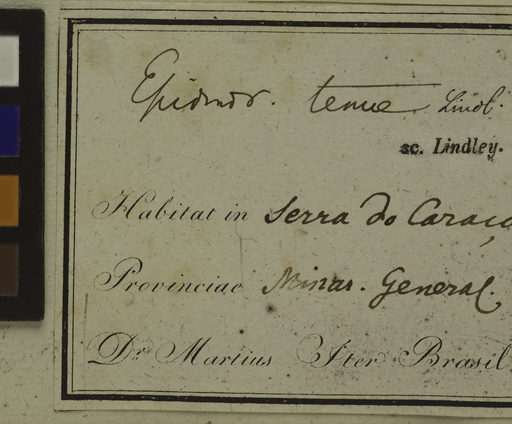 Epidendr. tenue Lindl.
sc. Lindley.
Habitat in Serra do Caraça
Provinciae Minas. General.
Dr. Martius Iter Brasil.